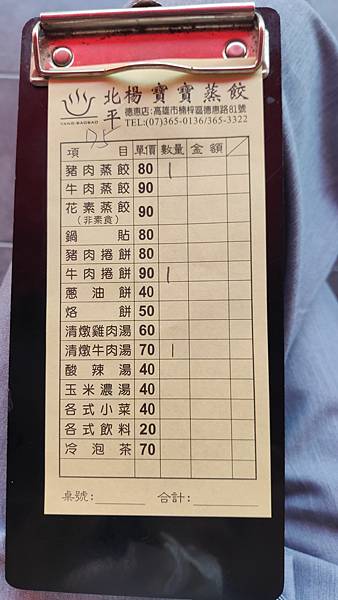 北平楊寶寶蒸餃
YANG-BAOBAO
德惠店:高雄市楠梓區德惠路81號
TEL:(07)365-0136/365-3322
項目 單價 數量 金額
豬肉蒸餃 80 |
牛肉蒸餃 90
花素蒸餃 90
(非素食)
鍋貼 80
豬肉捲餅 80
牛肉捲餅 90 |
蔥油餅 40
烙餅 50
清燉雞肉湯 60
清燉牛肉湯 70 |
酸辣湯 40
玉米濃湯 40
各式小菜 40
各式飲料 20
冷泡茶 70
桌號: 合計: